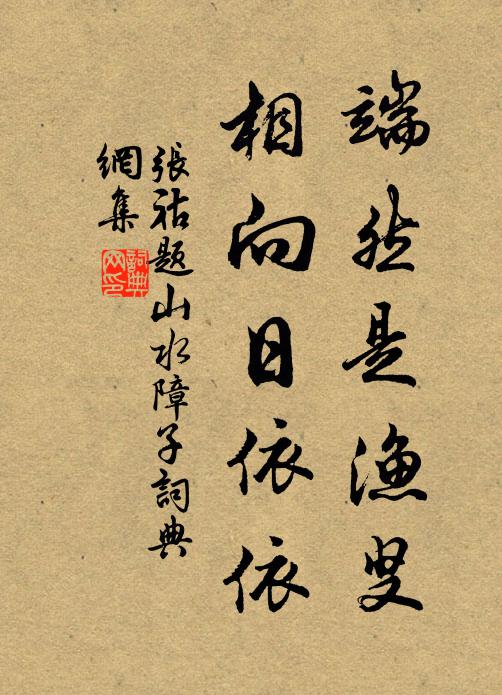 端然是漁叟
相向日依依
張祜題山水障子詞典
網集
詞典
网印